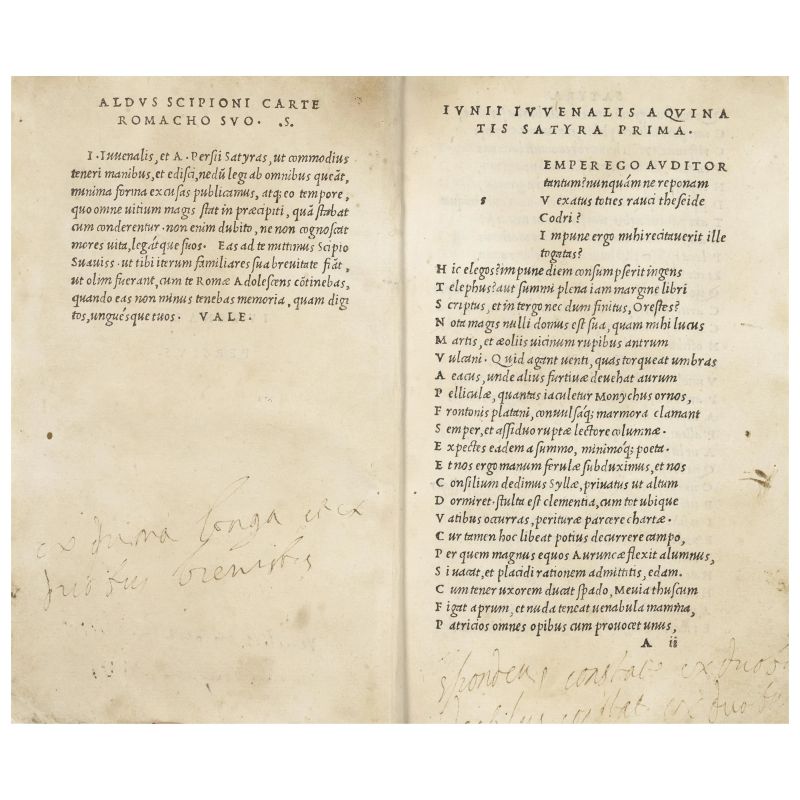 ALDVS SCIPIONI CARTE
ROMACHO SVO. .S.
I. Iuuenalis, et A. Persii Satyras, ut commodius
teneri manibus, et edisci, nedū legi ab omnibus queāt,
minima forma excusas publicamus, atq; eo tempore,
quo omne uitium magis stat in præcipiti, quā stabat
cum conderentur. non enim dubito, ne non cognoscat
mores uita, legátque suos. Eas ad te mittimus Scipio
Suauiss. ut tibi iterum familiares sua breuitate fiāt,
ut olim fuerant, cum te Romæ Adolescens cōtinebas,
quando eas non minus tenebas memoria, quam digi
tos, unguésque tuos. VALE.
ex prima longa et ex
duobus breuibus
IVNII IVVENALIS AQVINA
TIS SATYRA PRIMA.
EMPER EGO AVDITOR
tantum? nunquám ne reponam
s V exatus toties rauci theseide
Codri?
I mpune ergo mihi recitauerit ille
togatas?
H ic elegos? impune diem consumpserit ingens
T elephus? aut summi plena iam margine libri
S criptus, et in tergo nec dum finitus, Orestes?
N ota magis nulli domus est sua, quam mihi lucus
M artis, et æoliis uicinum rupibus antrum
V ulcani. Quid agant uenti, quas torqueat umbras
A eacus, unde alius furtiuæ deuehat aurum
P elliculæ, quantas iaculetur Monychus ornos,
F rontonis platani, conuulsáq; marmora clamant
S emper, et assiduo ruptæ lectore columnæ.
E xpectes eadem a summo, minimoq; poeta.
E t nos ergo manum ferulæ subduximus, et nos
C onsilium dedimus Syllæ, priuatus ut altum
D ormiret. stulta est clementia, cum tot ubique
V atibus occurras, perituræ parcere chartæ.
C ur tamen hoc libeat potius decurrere campo,
P er quem magnus equos Auruncæ flexit alumnus,
S i uacat, et placidi rationem admittitis, edam.
C um tener uxorem ducat spado, Meuia thuscum
F igat aprum, et nuda teneat uenabula mamma,
P atricios omnes opibus cum prouocet unus,
A ii
spondeus constat ex duob
constat ex duobus